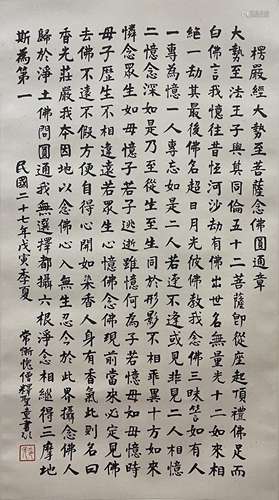 楞嚴經大勢至菩薩念佛圓通章
大勢至法王子與其同倫五十二菩薩即從座起頂禮佛足而
白佛言我憶往昔恆河沙劫有佛出世名無量光十二如來相
繼一劫其最後佛名超日月光彼佛教我念佛三昧譬如有人
一專為憶一人專忘如是二人若逢不逢或見非見二人相憶
二憶念深如是乃至從生至生同於形影不相乖異十方如來
憐念眾生如母憶子若子逃逝雖憶何為子若憶母如母憶時
母子歷生不相違遠若眾生心憶佛念佛現前當來必定見佛
去佛不遠不假方便自得心開如染香人身有香氣此則名曰
香光莊嚴我本因地以念佛心入無生忍今於此界攝念佛人
歸於淨土佛問圓通我無選擇都攝六根淨念相繼得三摩地
斯為第一 民國二十七年戊寅季夏
常慚愧僧釋聖量書